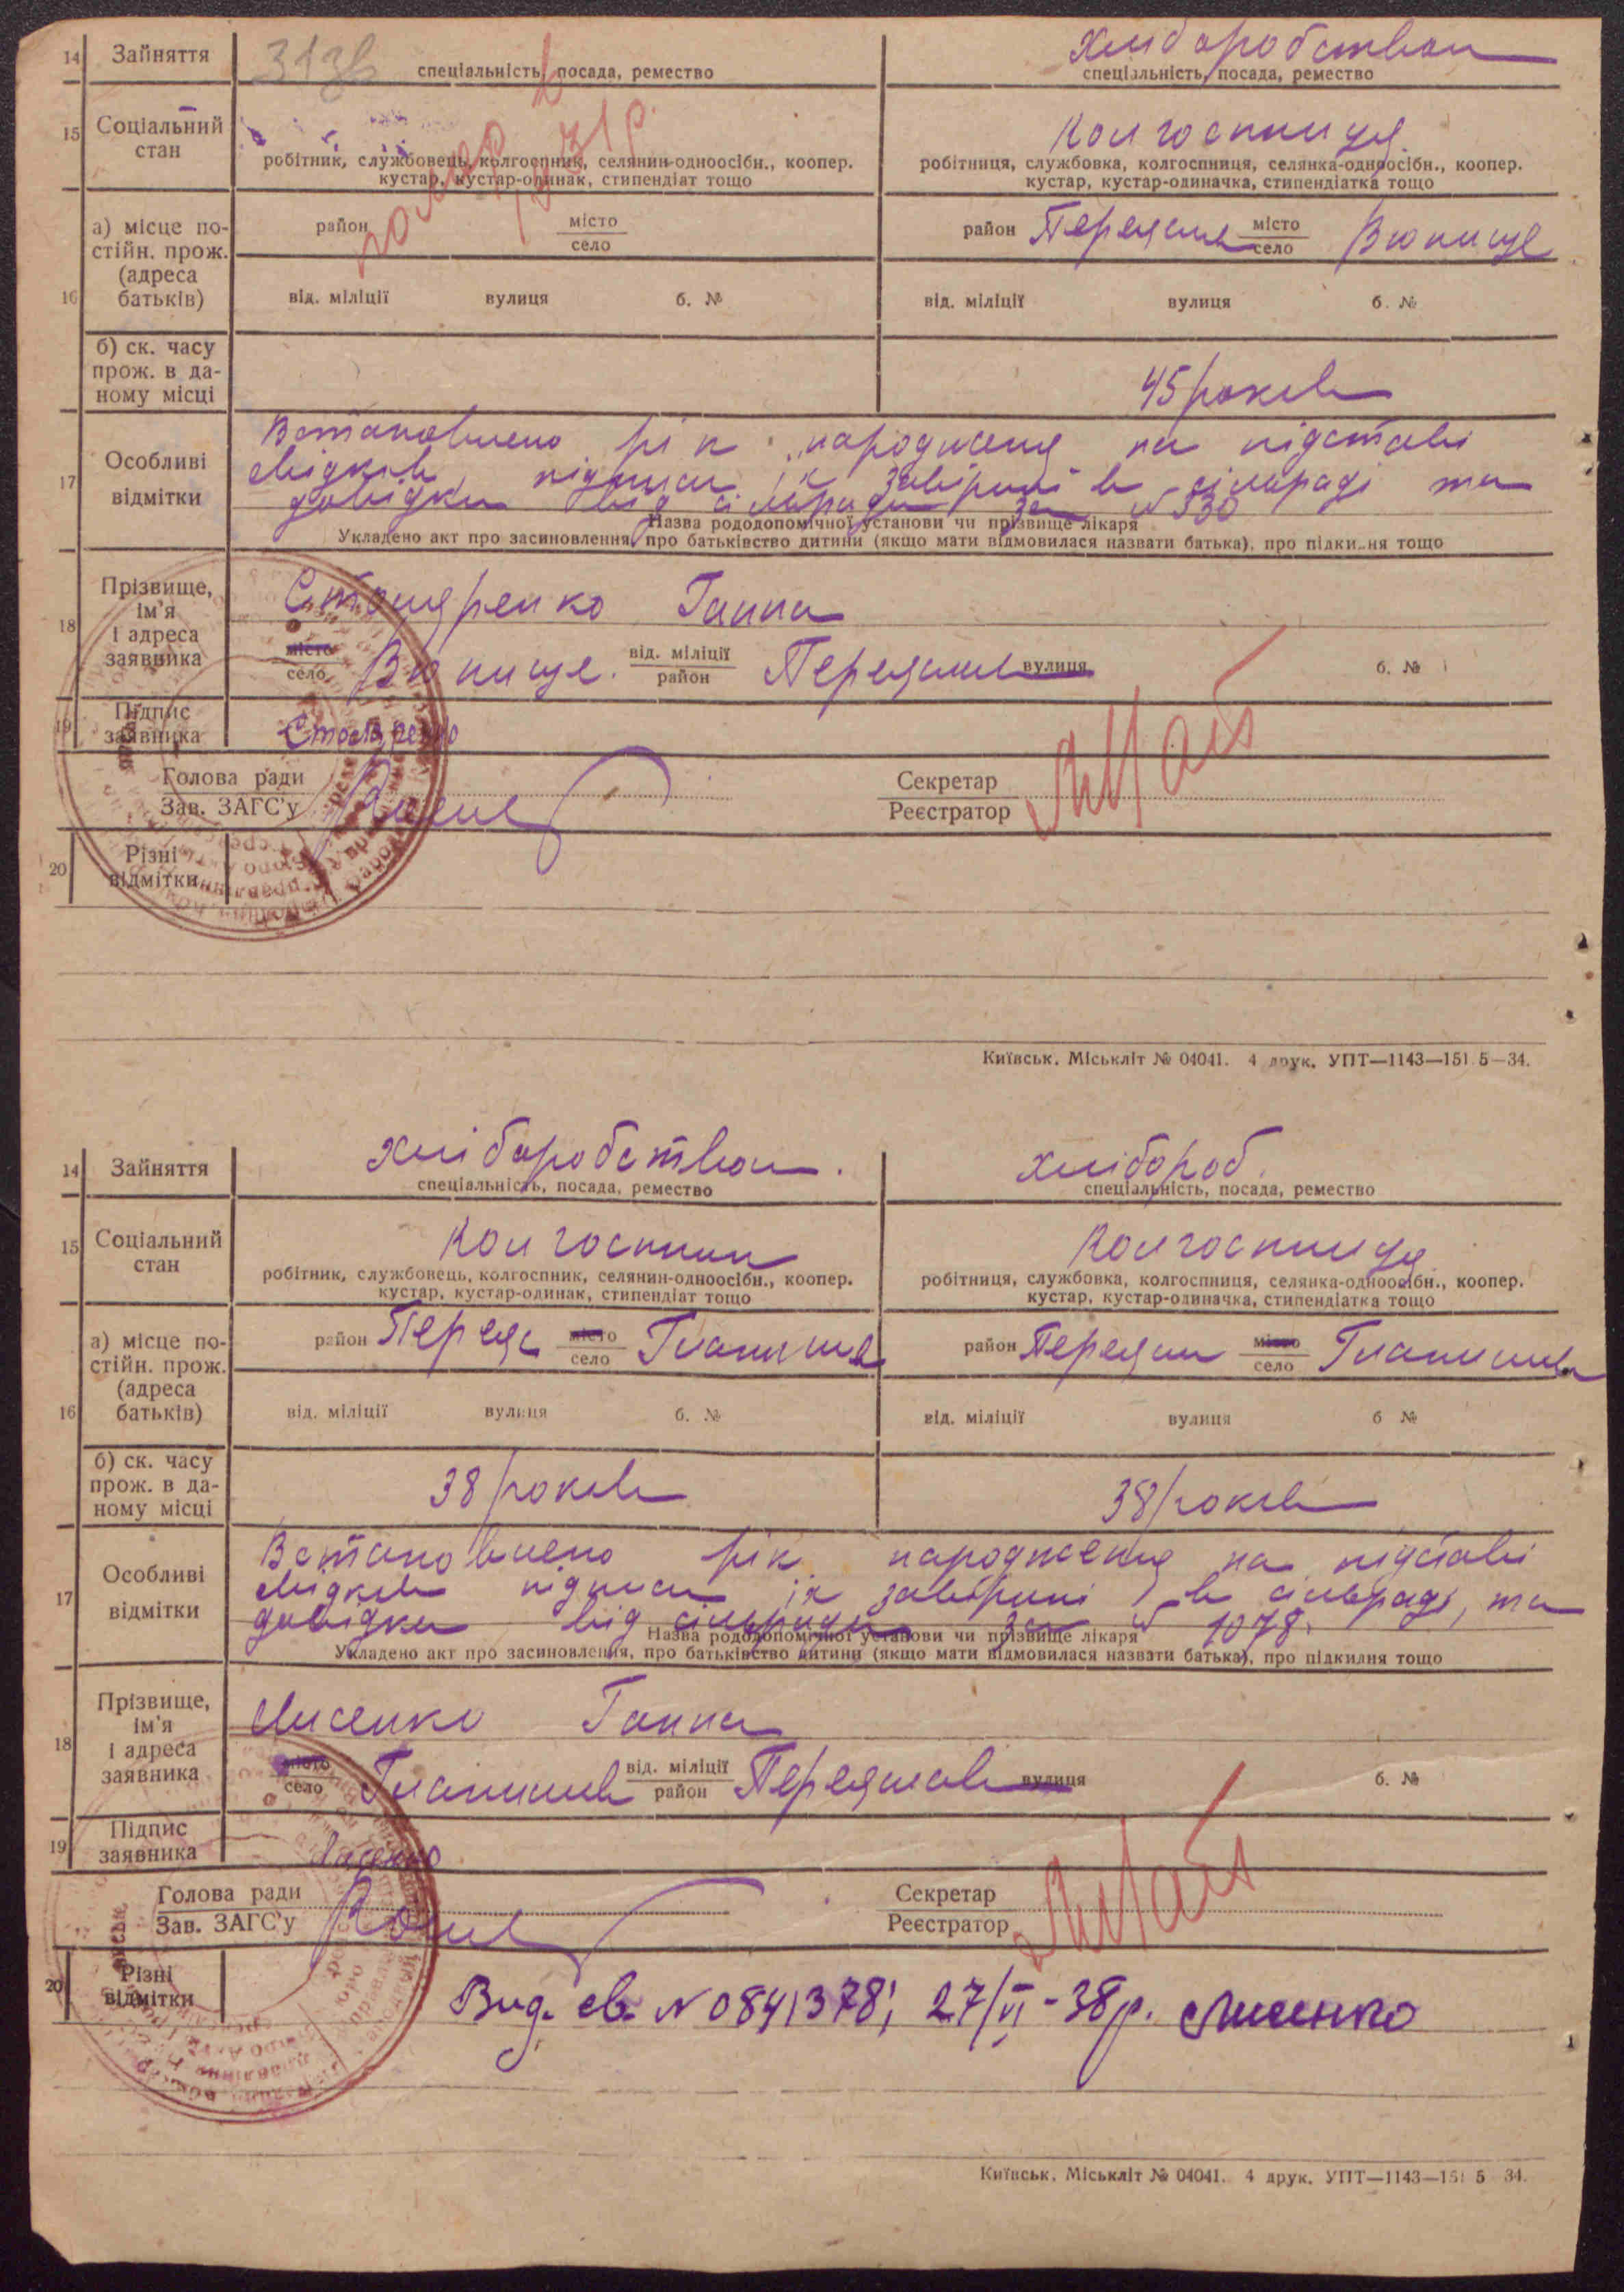 14 Зайняття 313 в хліборобством
спеціальність, посада, ремество спеціальність, посада, ремество
15 Соціальний стан помер 1931 р. колгоспниця
робітник, службовець, колгоспник, селянин-одноосібн., коопер. робітниця, службовка, колгоспниця, селянка-одноосібн., коопер.
кустар, кустар-одинак, стипендіат тощо кустар, кустар-одиначка, стипендіатка тощо
16 а) місце постійн. прож. (адреса батьків) район місто село район Переяслав місто село Вюнище
від. міліції вулиця б. № від. міліції вулиця б. №
б) ск. часу прож. в даному місці 45 років
17 Особливі відмітки Встановлено рік народження на підставі
свідків підписи їх завірині в сільраді та
довідки від сільради за № 530
Назва рододопомічної установи чи прізвище лікаря
Укладено акт про засиновлення, про батьківство дитини (якщо мати відмовилася назвати батька), про підкиння тощо
18 Прізвище, ім'я і адреса заявника Столяренко Ганна
місто село Вюнище. від. міліції район Переяслав вулиця б. №
19 Підпис заявника Столяренко
Голова ради Секретар
Зав. ЗАГС'у Реєстратор
20 Різні відмітки
Київськ. Міськліт № 04041. 4 друк. УПТ—1143—151 5—34.
14 Зайняття хліборобством. хлібороб.
спеціальність, посада, ремество спеціальність, посада, ремество
15 Соціальний стан колгоспник колгоспниця
робітник, службовець, колгоспник, селянин-одноосібн., коопер. робітниця, службовка, колгоспниця, селянка-одноосібн., коопер.
кустар, кустар-одинак, стипендіат тощо кустар, кустар-одиначка, стипендіатка тощо
16 а) місце постійн. прож. (адреса батьків) район Переясл місто село Гланишів район Переясл місто село Гланишів
від. міліції вулиця б. № від. міліції вулиця б №
б) ск. часу прож. в даному місці 38 років 38 років
17 Особливі відмітки Встановлено рік народження на підставі
свідків підписи їх завірині в сільраді, та
довідки від сільради за № 1078.
Назва рододопомічної установи чи прізвище лікаря
Укладено акт про засиновлення, про батьківство дитини (якщо мати відмовилася назвати батька), про підкидня тощо
18 Прізвище, ім'я і адреса заявника Лисенко Ганна
місто село Гланишів від. міліції район Переяслав вулиця б. №
19 Підпис заявника Лисенко
Голова ради Секретар
Зав. ЗАГС'у Реєстратор
20 Різні відмітки Вид. св. № 0841378; 27/VI - 38 р. Лисенко
Київськ. Міськліт № 04041. 4 друк. УПТ—1143—151 5 34.